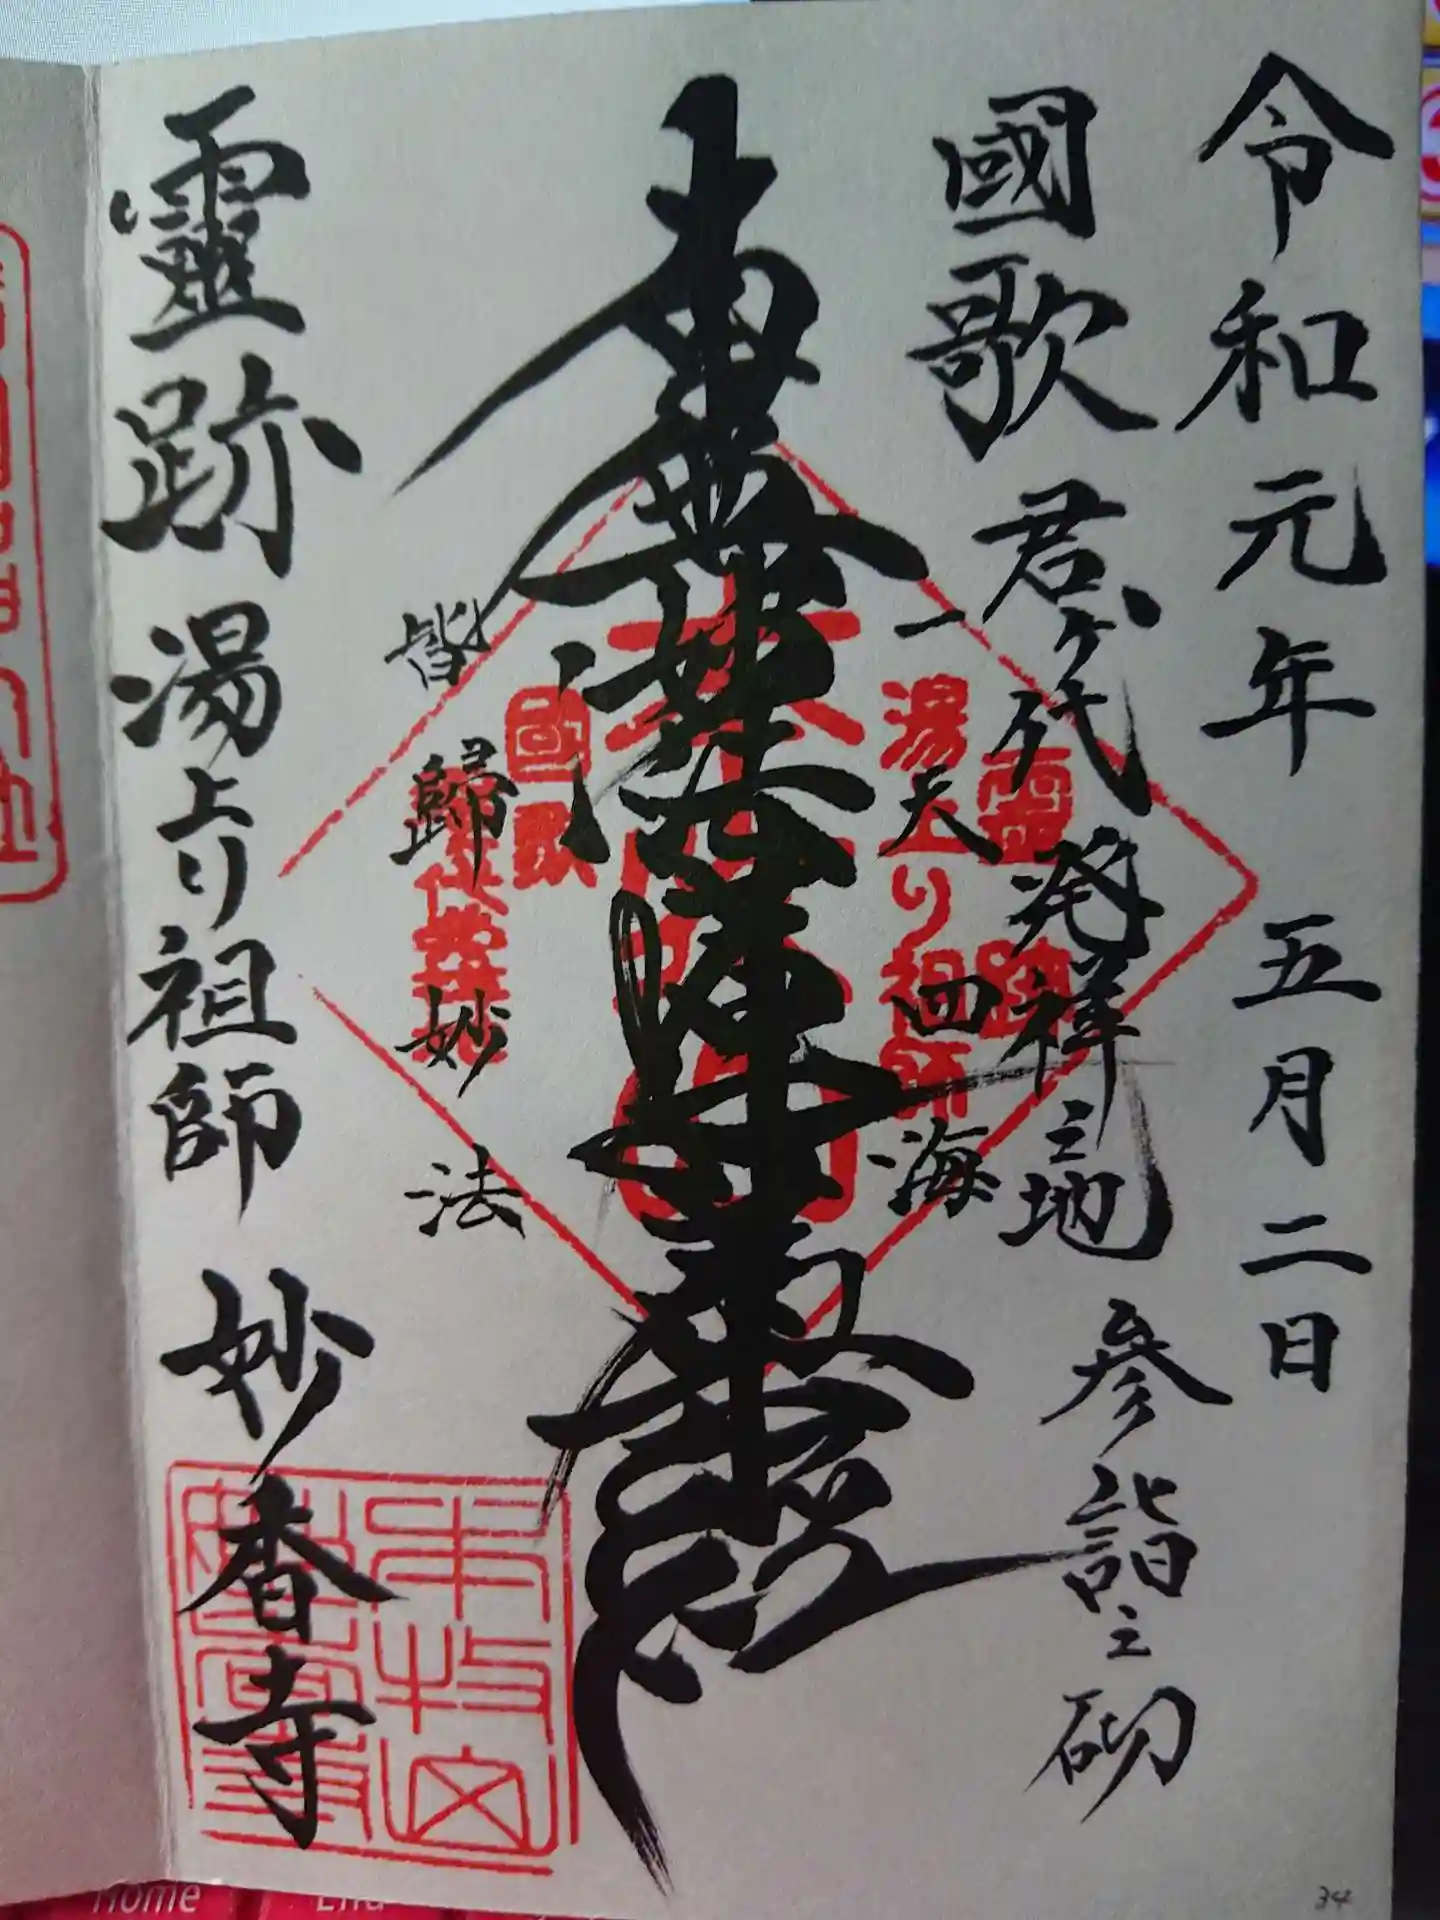 令和元年 五月二日
國歌君ヶ代発祥之地 参詣之砌
一天四海
南無妙法蓮華経
皆歸妙法
靈跡湯上り祖師 妙香寺
靈跡
湯上り祖師
國歌
Home
End
34